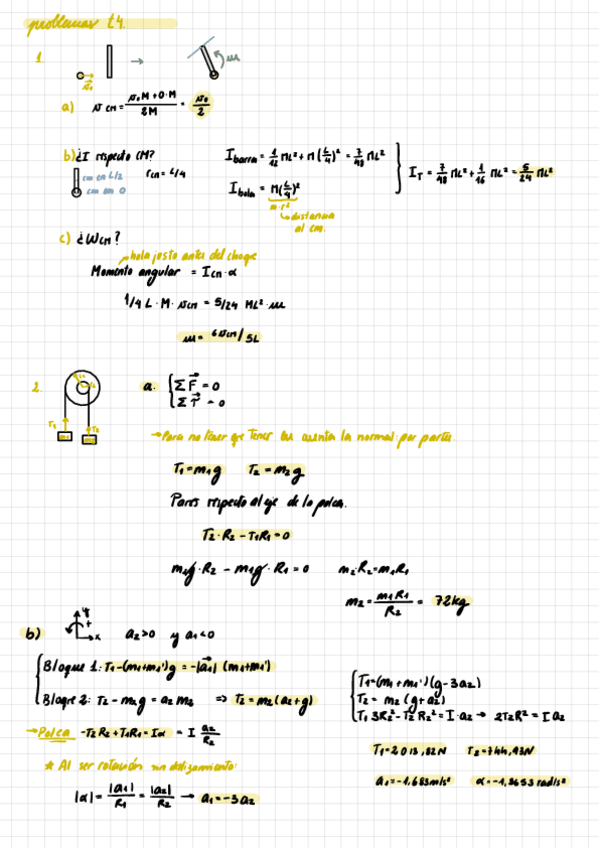 problemas t4.
1.
a) v cm = v₀M+0·M / 2M = v₀/2
b) ¿I respecto CM?
cm en L/2
cm en 0
rcm = L/4
I barra = 1/12 ML² + M(L/4)² = 7/48 ML²
I bola = M(L/4)²
m·r²
distancia al cm.
I_T = 7/48 ML² + 1/16 ML² = 5/24 ML²
c) ¿Wcm?
bola justo antes del choque
Momento angular = Icm·α
1/4 L·M·vcm = 5/24 ML²·ω
ω = 6vcm/5L
2.
T₁
T₂
a. Σ F = 0
Σ τ = 0
→Para no tener que tener en cuenta la normal: por partes.
T₁=m₁g T₂=m₂g
Pares respecto al eje de la polea.
T₂·R₂ − T₁R₁=0
m₂g·R₂ − m₁g·R₁=0 m₂·R₂=m₁R₁
m₂ = m₁R₁ / R₂ = 72kg
b) y + x a₂>0 y a₁<0
Bloque 1: T₁−(m₁+m₁')g = −|a₁| (m₁+m₁')
Bloque 2: T₂ − m₂g = a₂m₂ ⇒ T₂=m₂(a₂+g)
→Polea −T₂R₂+T₁R₁=Iα = I a₂/R₂
* Al ser rotación sin deslizamiento:
|α| = |a₁|/R₁ = |a₂|/R₂ → a₁=−3a₂
T₁=(m₁+m₁')(g−3a₂)
T₂ = m₂(g+a₂)
T₁3R₂²−T₂R₂²=I·a₂ → 2T₂R²=I a₂
T₁=2013,82N T₂=744,93N
a₁=−1,683m/s² α=−1,3653 rad/s²